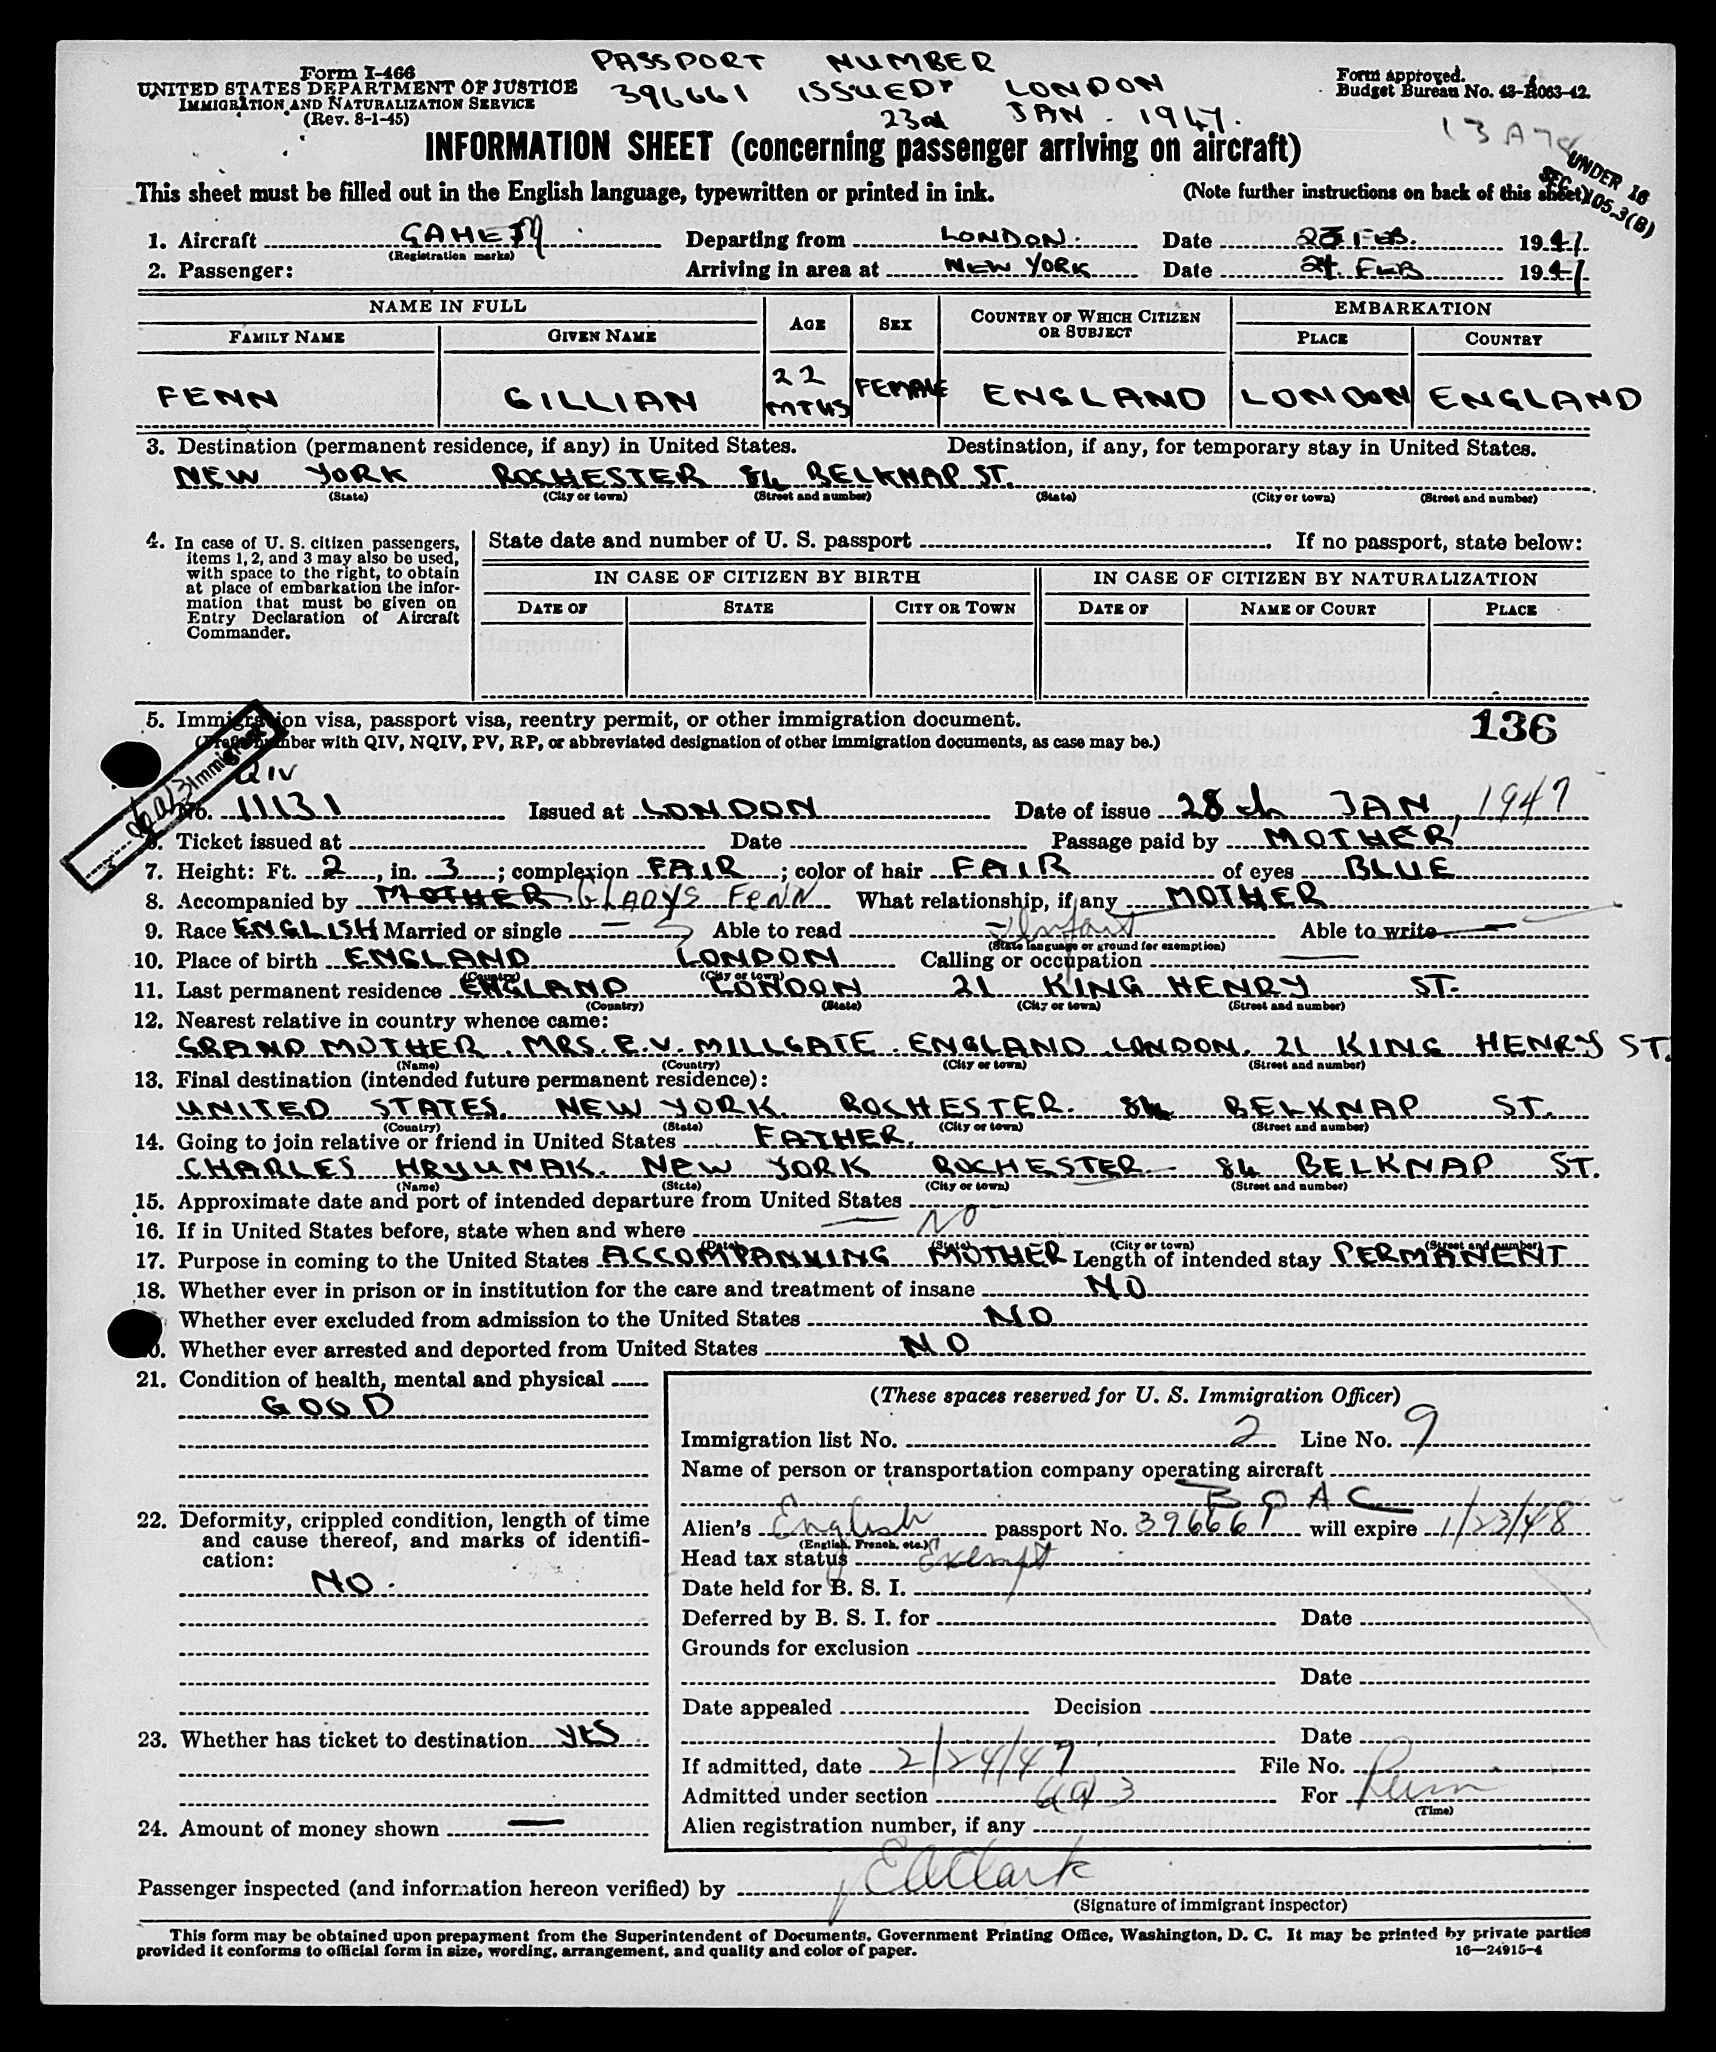 Form I-466
UNITED STATES DEPARTMENT OF JUSTICE
IMMIGRATION AND NATURALIZATION SERVICE
(Rev. 8-1-45)
PASSPORT NUMBER
396661 ISSUED LONDON
23rd JAN. 1947.
Form approved.
Budget Bureau No. 43-R063-42.
UNDER 16
SEC. 105.3(B)
INFORMATION SHEET (concerning passenger arriving on aircraft)
This sheet must be filled out in the English language, typewritten or printed in ink. (Note further instructions on back of this sheet)
1. Aircraft Departing from LONDON. Date 23 FEB. 1947
(Registration marks)
2. Passenger: Arriving in area at NEW YORK Date 24 FEB 1947
NAME IN FULL AGE SEX COUNTRY OF WHICH CITIZEN OR SUBJECT EMBARKATION
FAMILY NAME GIVEN NAME PLACE COUNTRY
FENN GILLIAN 22 MTHS FEMALE ENGLAND LONDON ENGLAND
3. Destination (permanent residence, if any) in United States. Destination, if any, for temporary stay in United States.
NEW YORK ROCHESTER 84 BELKNAP ST.
(State) (City or town) (Street and number) (State) (City or town) (Street and number)
4. In case of U. S. citizen passengers,
items 1, 2, and 3 may also be used,
with space to the right, to obtain
at place of embarkation the infor-
mation that must be given on
Entry Declaration of Aircraft
Commander.
State date and number of U. S. passport If no passport, state below:
IN CASE OF CITIZEN BY BIRTH IN CASE OF CITIZEN BY NATURALIZATION
DATE OF STATE CITY OR TOWN DATE OF NAME OF COURT PLACE
5. Immigration visa, passport visa, reentry permit, or other immigration document. 136
(Prefix number with QIV, NQIV, PV, RP, or abbreviated designation of other immigration documents, as case may be.)
Immigrant
QIV
No. 11131 Issued at LONDON Date of issue 28th JAN, 1947
6. Ticket issued at Date Passage paid by MOTHER
7. Height: Ft. 2, in. 3; complexion FAIR; color of hair FAIR of eyes BLUE
8. Accompanied by MOTHER GLADYS FENN What relationship, if any MOTHER
9. Race ENGLISH Married or single — Able to read Infant Able to write —
(State language or ground for exemption)
10. Place of birth ENGLAND LONDON Calling or occupation —
(Country) (City or town)
11. Last permanent residence ENGLAND LONDON 21 KING HENRY ST.
(Country) (State) (City or town) (Street and number)
12. Nearest relative in country whence came:
GRAND MOTHER. MRS. E. V. MILLGATE. ENGLAND. LONDON. 21 KING HENRY ST.
(Name) (Country) (City or town) (Street and number)
13. Final destination (intended future permanent residence):
UNITED STATES. NEW YORK. ROCHESTER. 84 BELKNAP ST.
(Country) (State) (City or town) (Street and number)
14. Going to join relative or friend in United States FATHER.
CHARLES HRYUNAK. NEW YORK ROCHESTER. 84 BELKNAP ST.
(Name) (State) (City or town) (Street and number)
15. Approximate date and port of intended departure from United States —
16. If in United States before, state when and where NO
(Date) (State) (City or town) (Street and number)
17. Purpose in coming to the United States ACCOMPANYING MOTHER Length of intended stay PERMANENT
18. Whether ever in prison or in institution for the care and treatment of insane NO
Whether ever excluded from admission to the United States NO
0. Whether ever arrested and deported from United States NO
21. Condition of health, mental and physical
GOOD
22. Deformity, crippled condition, length of time
and cause thereof, and marks of identifi-
cation:
NO.
23. Whether has ticket to destination YES
24. Amount of money shown —
(These spaces reserved for U. S. Immigration Officer)
Immigration list No. 2 Line No. 9
Name of person or transportation company operating aircraft
BOAC
Alien's English passport No. 396661 will expire 1/23/48
(English, French, etc.)
Head tax status Exempt
Date held for B. S. I.
Deferred by B. S. I. for Date
Grounds for exclusion
Date
Date appealed Decision
Date
If admitted, date 2/24/47 File No.
Admitted under section 6(a)3 For Perm
(Time)
Alien registration number, if any
Passenger inspected (and information hereon verified) by EAClark
(Signature of immigrant inspector)
This form may be obtained upon prepayment from the Superintendent of Documents, Government Printing Office, Washington, D. C. It may be printed by private parties
provided it conforms to official form in size, wording, arrangement, and quality and color of paper. 16—24915-4